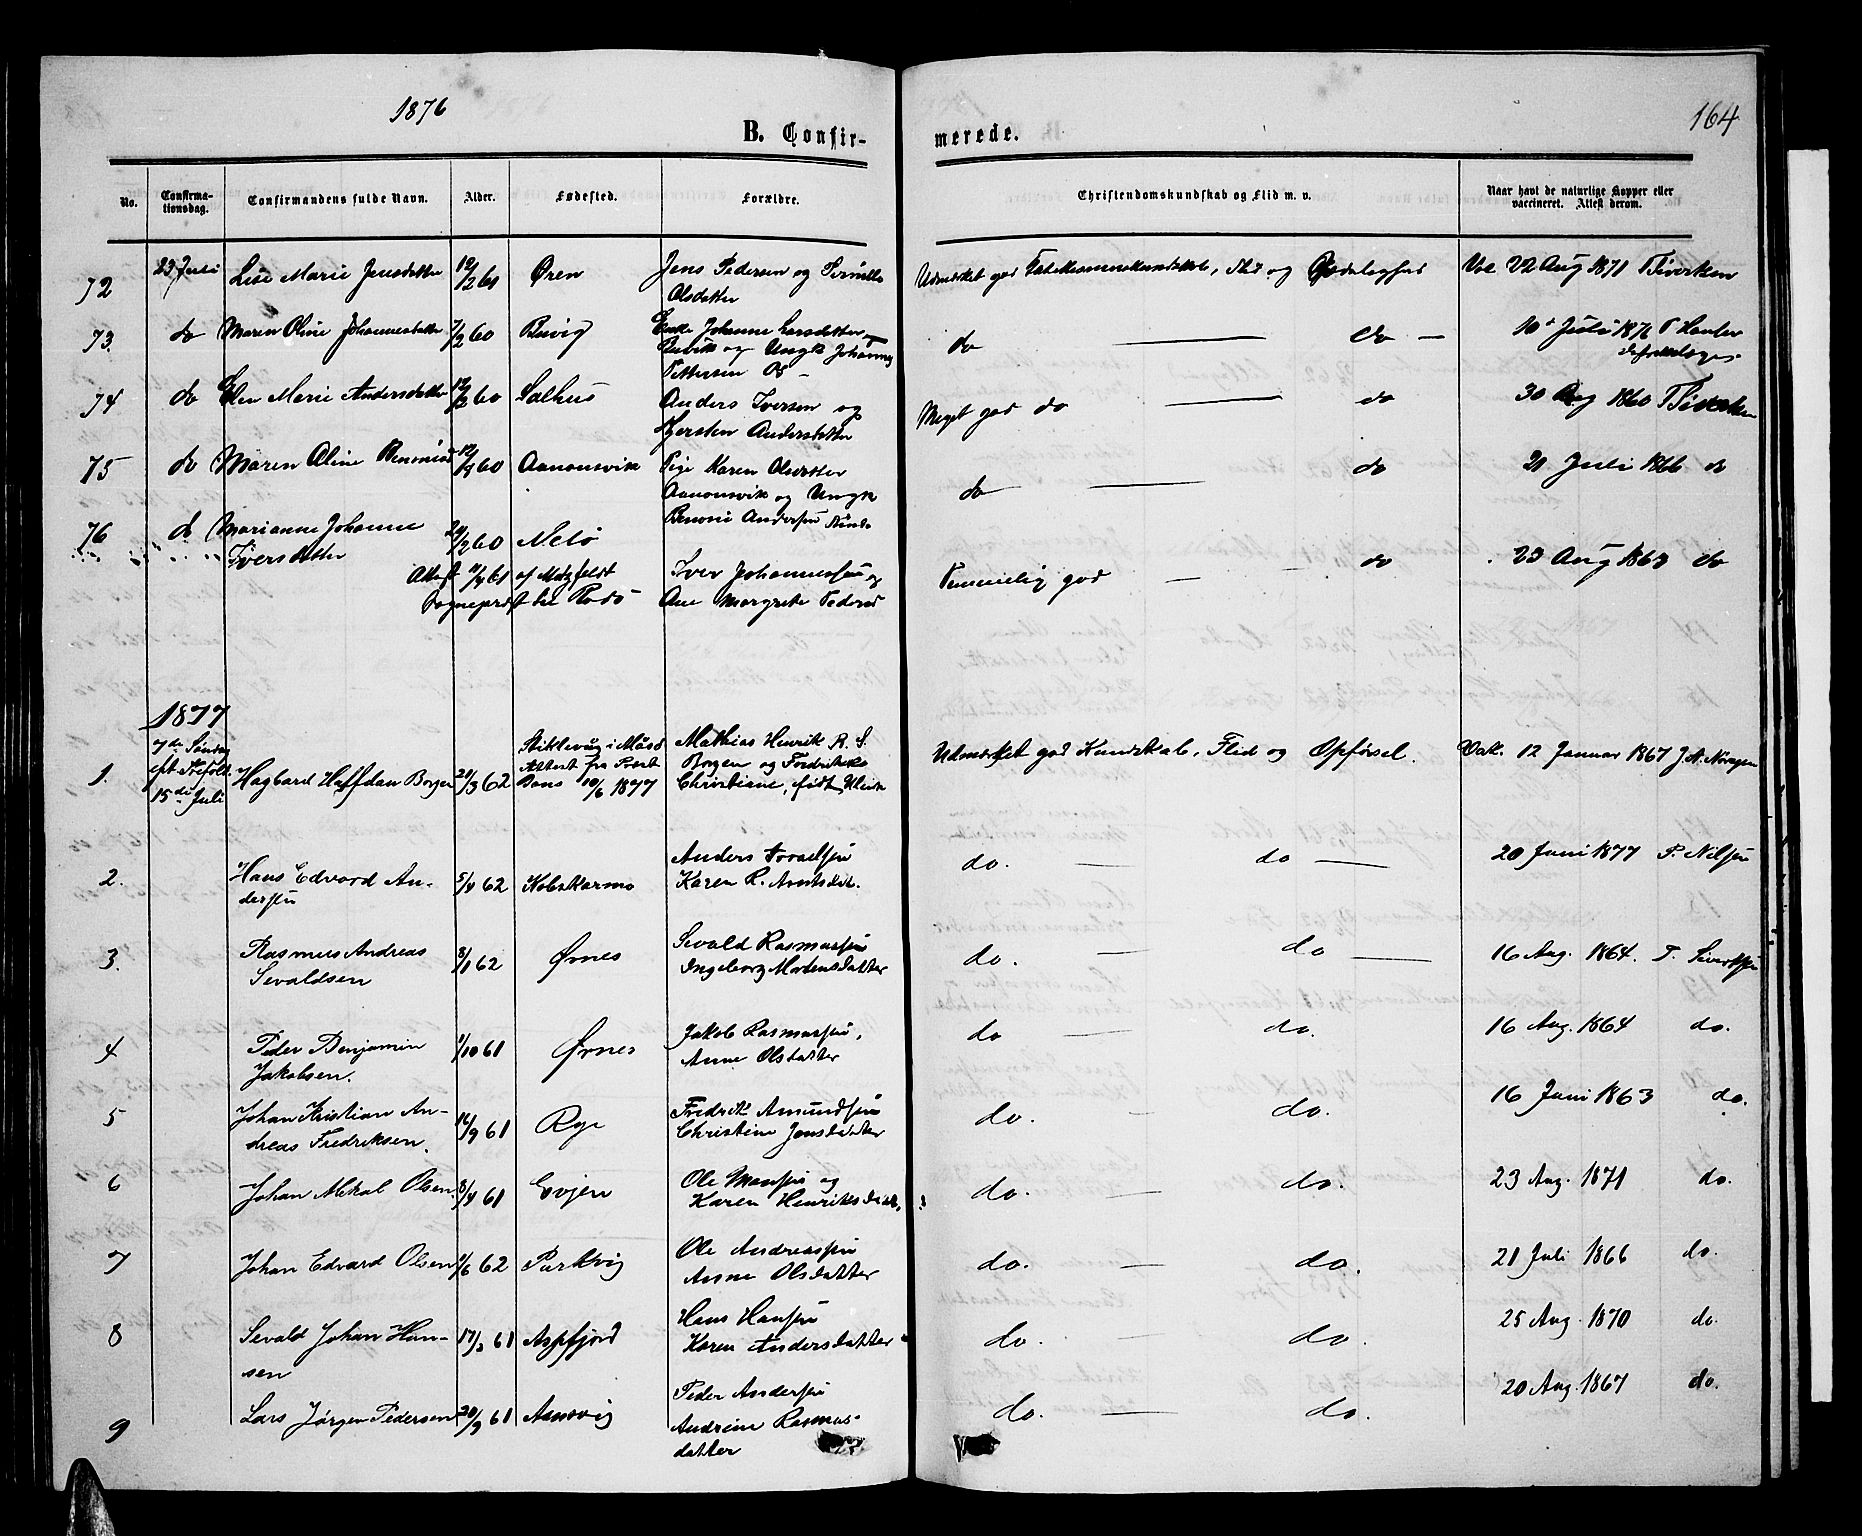 1876
164
B. Confir-
merede.
No.
Confirma-
tionsdag.
Confirmandens fulde Navn.
Alder.
Fødested.
Forældre.
Christendomskundskab og Flid m. v.
Naar havt de naturlige Kopper eller
vaccineret. Attest derom.
72 23 Juli Lise Marie Jensdatter Øren Jens Pedersen og Pernille
Olsdatter
Udmærket god Flid og
22 Aug 1871
73. do Maren Oline Johannesdatter 7/2 60 Buvig Enke Johanne Larsdatter
Buvik og Ungk Johannes
Pettersen Os -
do — do —
10 Juli 1876
74 do Elen Marie Andersdatter 60 Salhus Anders Iversen og
Kjersten Andersdatter
Meget god do — do
30 Aug 1860
75 do Maren Oline 60 Aanonsvik Pige Karen Olsdatter
Aanonsvik og Ungk
Benoni Andersen
do — do
21 Juli 1866 do
76 do Marianne Johanne
Iversdatter
60 Nesø
Attest 61 af
Sogneprest til Rødø
Iver Johannessen og
Ane Margrete
Temmelig god — do
23 Aug 1863 do
1877
7de Søndag
eft. Trefold.
15de Juli
1. Hagbard Halfdan Borgen 62
Attest fra
10/6 1877
Mathias Henrik R. S.
Borgen og Fredrikke
Christiane, født
Udmærket god Kundskab, Flid og Opførsel.
Vak. 12 Januar 1867
2. Hans Edvard An-
dersen
5/4 62 Kobskarmo Anders
Karen R.
do. — do —
20 Juni 1877 P. Nilsen
3. Rasmus Andreas
Sevaldsen
8/1 62 Ørnes Sevald Rasmussen
Ingeborg Mortensdatter
do. do —
16 Aug. 1864. T. Sivertsen
4 Peder Benjamin
Jakobsen.
/10 61 Ørnes Jakob Rasmussen,
Anne Olsdatter
do — do.
16 Aug. 1864 do.
5 Johan Kristian An-
dreas Fredriksen.
16/9 61 Fredrik Amundsen
Christine Jensdatter
do. — do.
16 Juni 1863 do.
6 Johan Mekal Olsen 61 Evjen Ole Monsen og
Karen Henriksdatt.
do. — do.
23 Aug. 1871 do.
7 Johan Edvard Olsen /6 62 Parkvig Ole Andreassen
Anne Olsdatter
do. — do.
21 Juli 1866 do.
8 Sevald Johan Han-
sen
17/ 61 Aspfjord Hans Hansen
Karen Andersdatter
do. — do.
25 Aug. 1870 do.
9 Lars Jørgen Pedersen 20/9 61 Aansvig Peder Andersen
Andrine Rasmus-
datter
do. — do.
20 Aug. 1867 do.